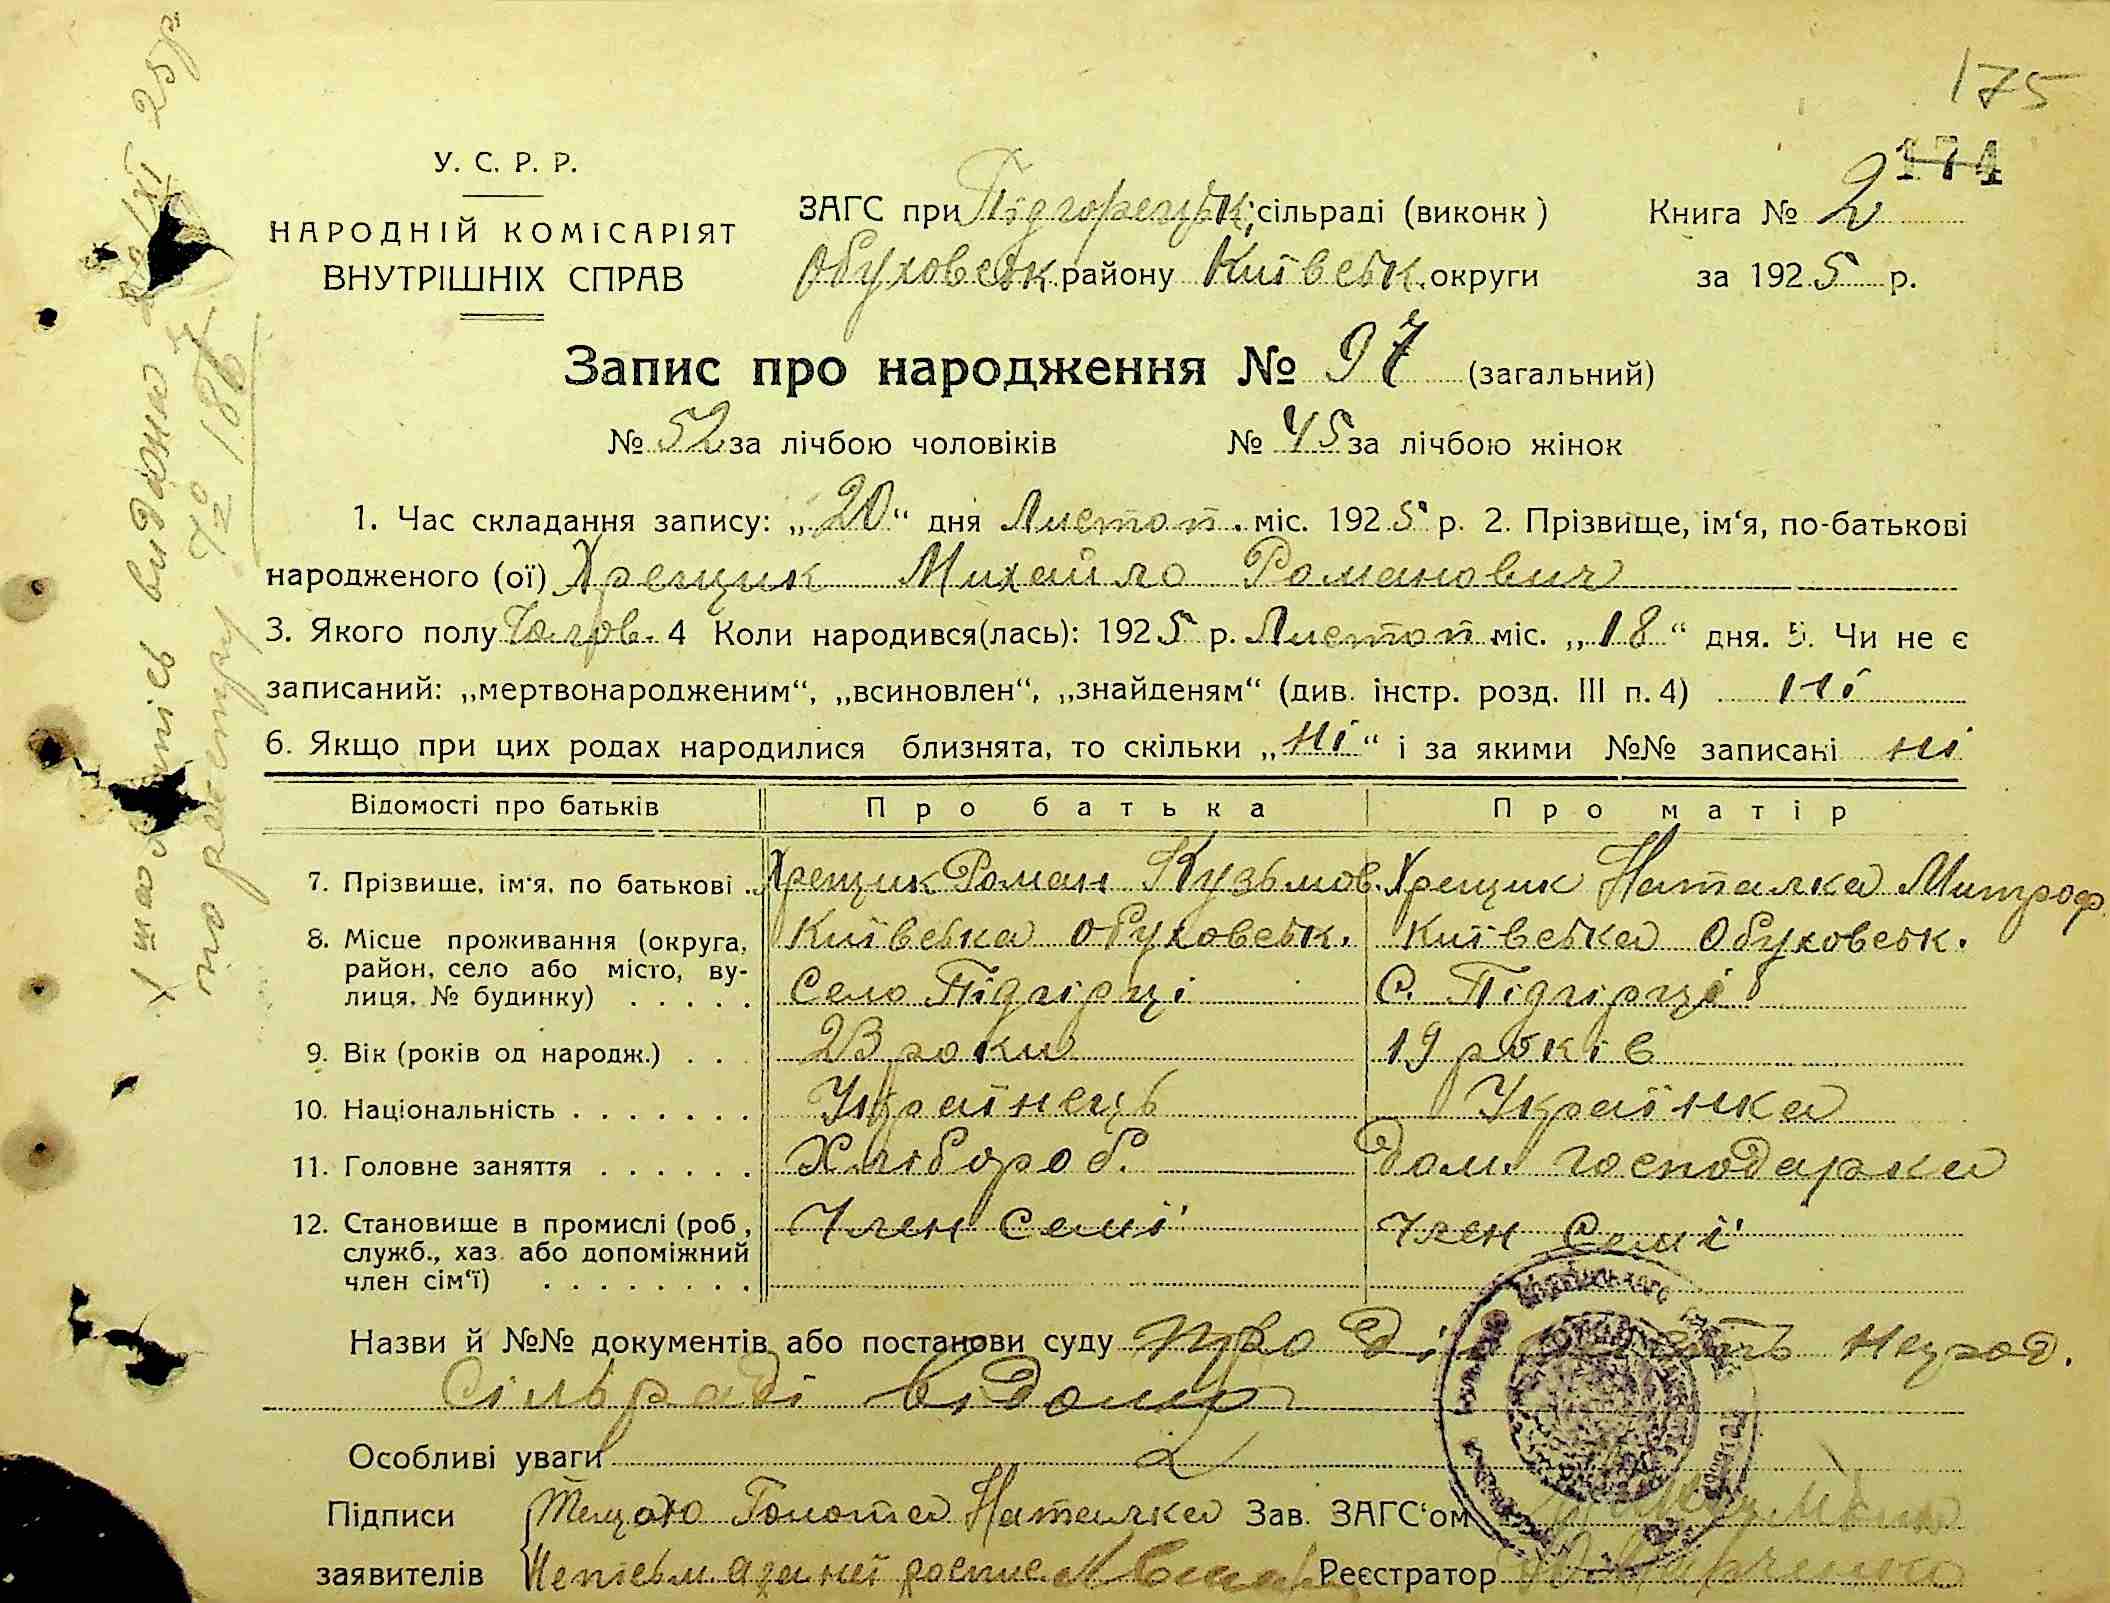 175
174
У. С. Р. Р.
НАРОДНІЙ КОМІСАРІЯТ
ВНУТРІШНІХ СПРАВ
ЗАГС при Підгорецьк. сільраді (виконк)
Обуховськ. району Київськ. округи
Книга № 2
за 1925 р.
Запис про народження № 97 (загальний)
№ 52 за лічбою чоловіків № 45 за лічбою жінок
1. Час складання запису: „20“ дня Листоп. міс. 1925 р. 2. Прізвище, ім‘я, по-батькові
народженого (ої) Хрещик Михайло Романович
3. Якого полу Чолов. 4 Коли народився(лась): 1925 р. Листоп міс. „18“ дня. 5. Чи не є
записаний: „мертвонародженим“, „всиновлен“, „знайденям“ (див. інстр. розд. III п. 4) ні
6. Якщо при цих родах народилися близнята, то скільки „ні“ і за якими №№ записані ні
Відомості про батьків Про батька Про матір
7. Прізвище, ім‘я, по батькові . Хрещик Роман Кузьмов. Хрещик Наталка Митроф.
8. Місце проживання (округа, Київська Обуховськ. Київська Обуховськ.
район, село або місто, ву- Село Підгірці С. Підгірці
лиця, № будинку) . . . . .
9. Вік (років од народж.) . . . 23 роки 19 років
10. Національність . . . . . . . Українець Українка
11. Головне заняття . . . . . . Хлібороб. Дом. господарка
12. Становище в промислі (роб, Член семї Член семї
служб., хаз. або допоміжний
член сім‘ї) . . . . . . . .
Назви й №№ документів або постанови суду про нерод.
Сільраді відомо
Особливі уваги
Підписи Тещою Голота Наталка Зав. ЗАГС‘ом
заявителів Неписьм. а за неї роспис. Реєстратор
видана 20/XI 25 р
по реєстру № 186